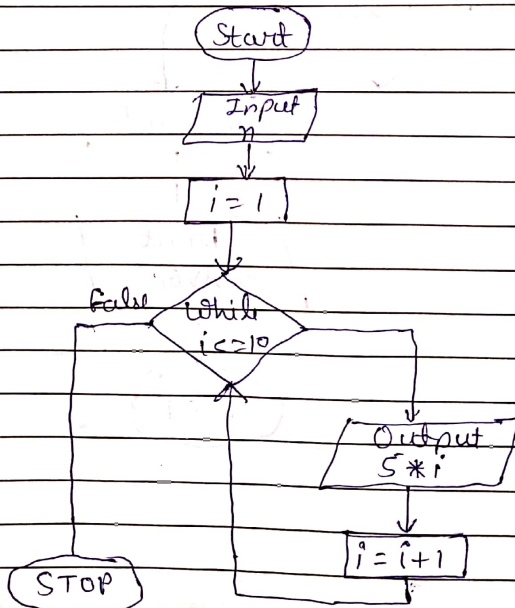 Start
Input
n
i = 1
False
While
i <= 10
Output
5 * i
i = i+1
STOP